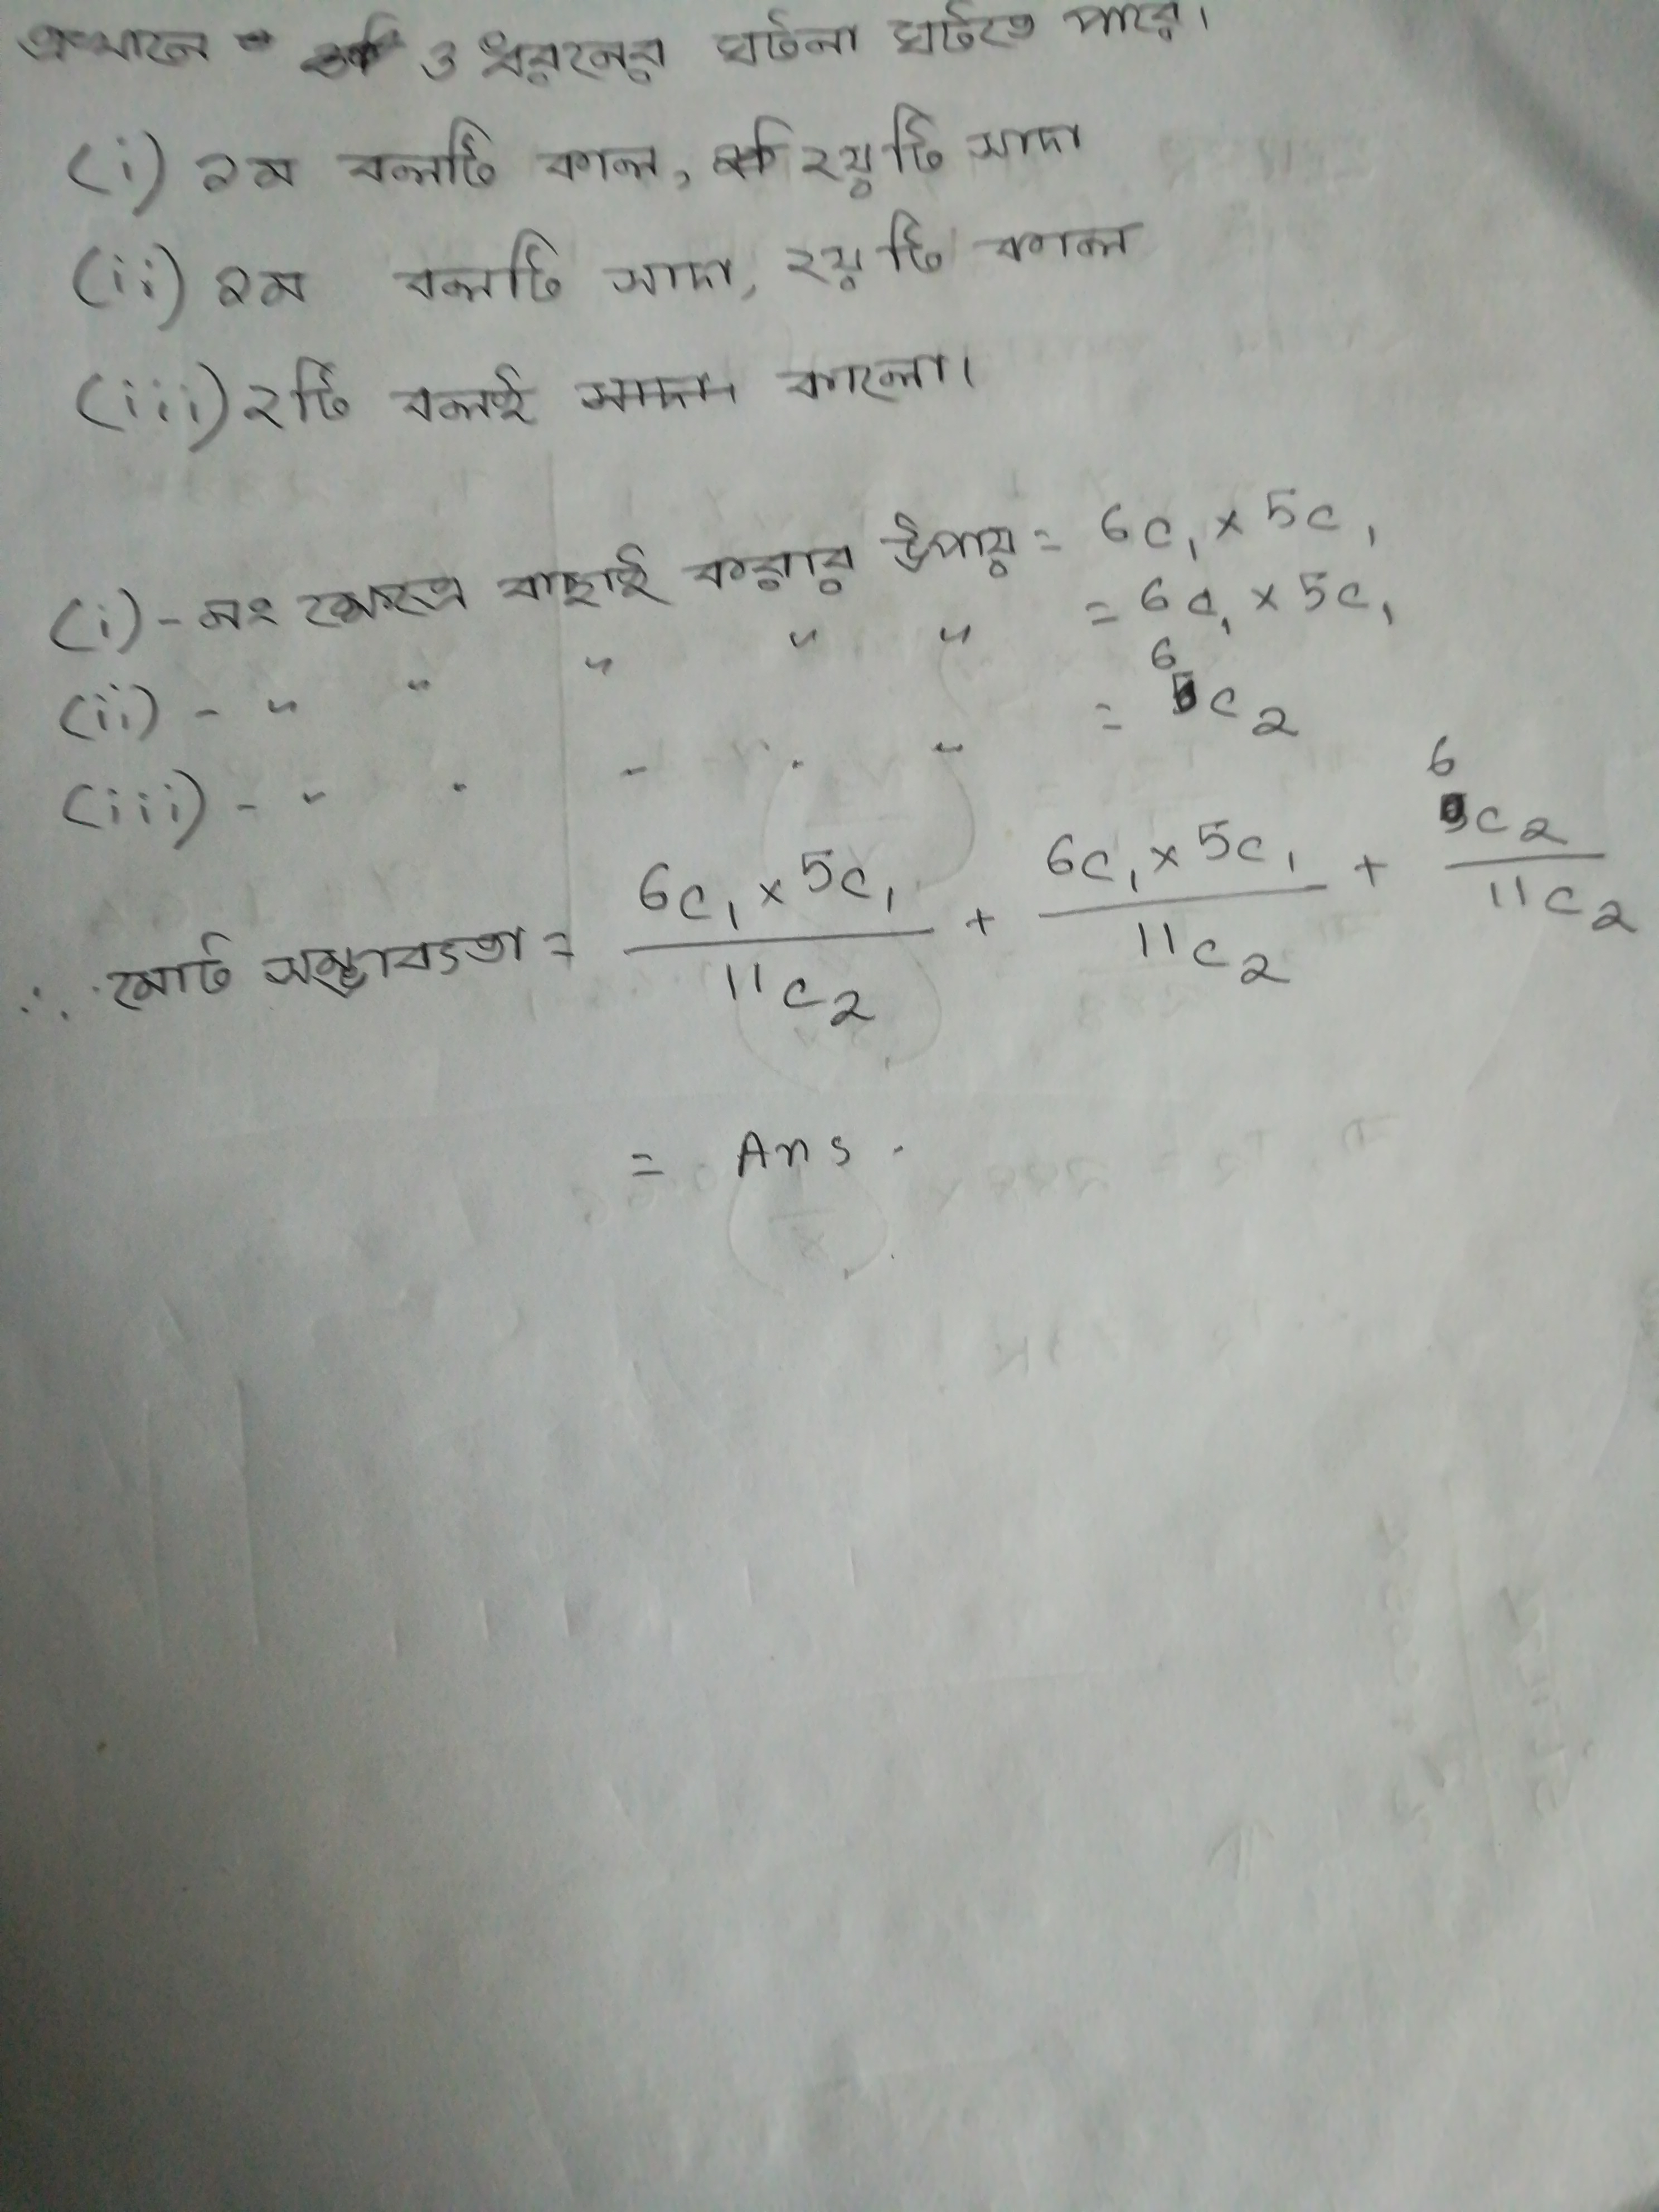 এখানে ৩ ধরনের ঘটনা ঘটতে পারে।
(i) ১ম বলটি কাল, ২য়টি সাদা
(ii) ১ম বলটি সাদা, ২য়টি কাল
(iii) ২টি বলই সাদা কালো।
(i) - নং ক্ষেত্রে বাছাই করার উপায় = 6c₁ × 5c₁
(ii) - " " " " " = 6c₁ × 5c₁
(iii) - " " " " " = 6c₂
∴ মোট সম্ভাবত্যতা = 6c₁ × 5c₁ / 11c₂ + 6c₁ × 5c₁ / 11c₂ + 6c₂ / 11c₂
= Ans.